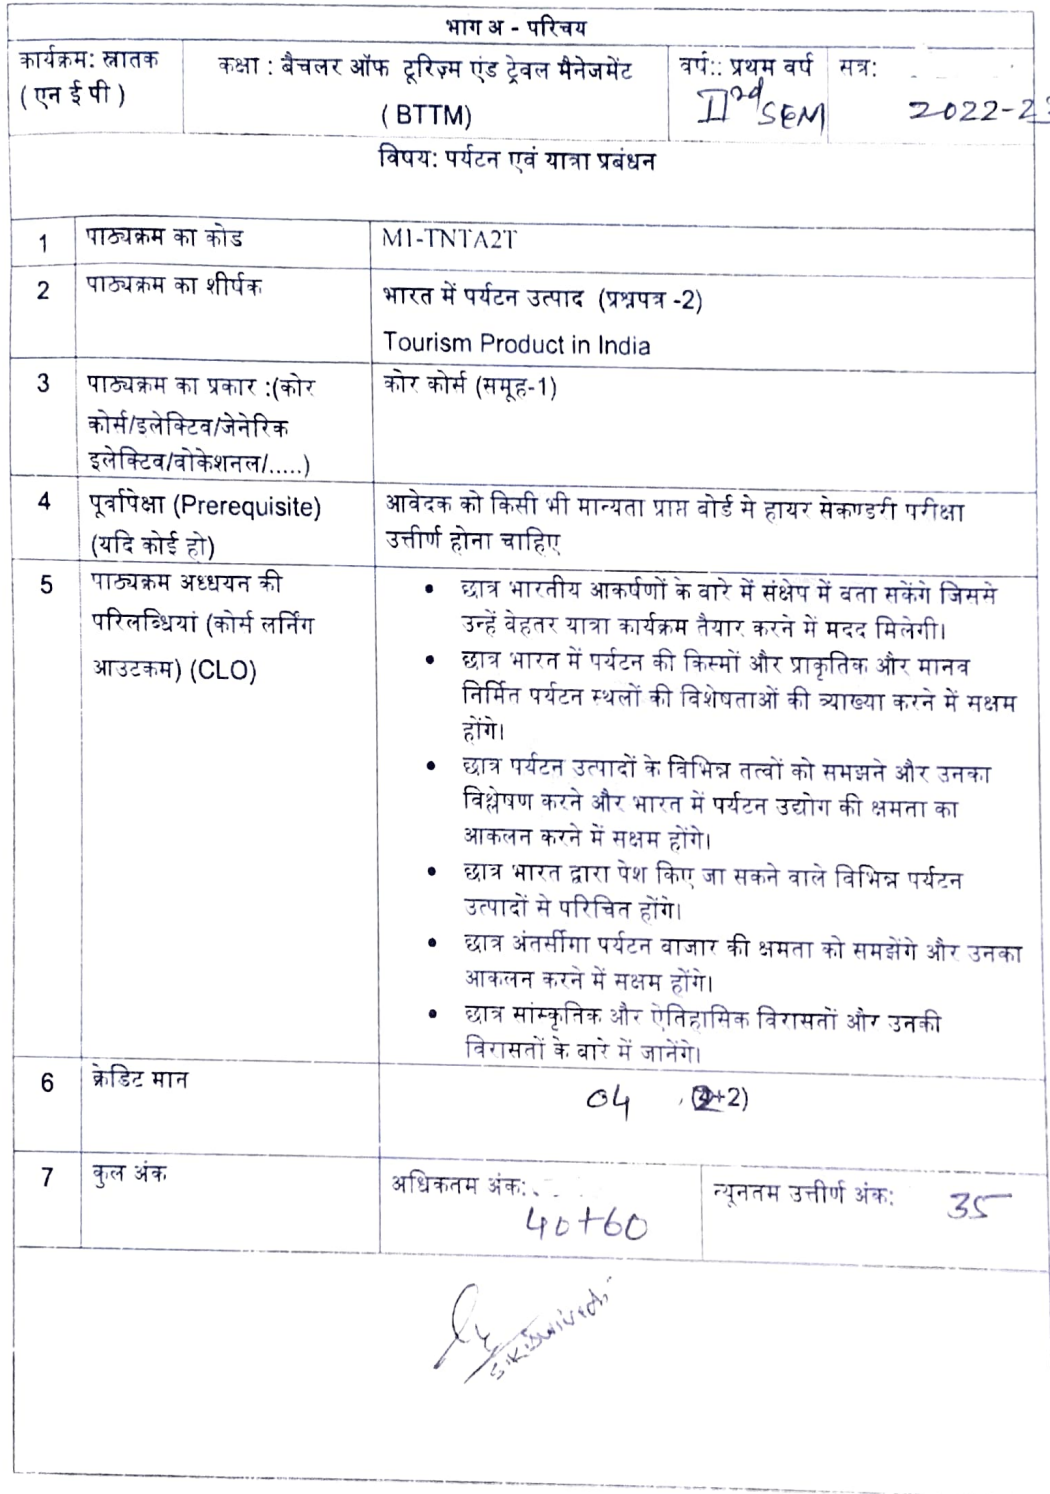 भाग अ - परिचय
कार्यक्रम: स्नातक
( एन ई पी )
कक्षा : बैचलर ऑफ टूरिज़्म एंड ट्रेवल मैनेजमेंट
( BTTM)
वर्ष:: प्रथम वर्ष
IInd SEM
सत्र:
2022-23
विषय: पर्यटन एवं यात्रा प्रबंधन
1 पाठ्यक्रम का कोड M1-TNTA2T
2 पाठ्यक्रम का शीर्षक
भारत में पर्यटन उत्पाद (प्रश्नपत्र -2)
Tourism Product in India
3 पाठ्यक्रम का प्रकार :(कोर
कोर्स/इलेक्टिव/जेनेरिक
इलेक्टिव/वोकेशनल/.....)
कोर कोर्स (समूह-1)
4 पूर्वापेक्षा (Prerequisite)
(यदि कोई हो)
आवेदक को किसी भी मान्यता प्राप्त बोर्ड से हायर सेकण्डरी परीक्षा
उत्तीर्ण होना चाहिए
5 पाठ्यक्रम अध्धयन की
परिलब्धियां (कोर्स लर्निंग
आउटकम) (CLO)
• छात्र भारतीय आकर्षणों के बारे में संक्षेप में बता सकेंगे जिससे
उन्हें बेहतर यात्रा कार्यक्रम तैयार करने में मदद मिलेगी।
• छात्र भारत में पर्यटन की किस्मों और प्राकृतिक और मानव
निर्मित पर्यटन स्थलों की विशेषताओं की व्याख्या करने में सक्षम
होंगे।
• छात्र पर्यटन उत्पादों के विभिन्न तत्वों को समझने और उनका
विश्लेषण करने और भारत में पर्यटन उद्योग की क्षमता का
आकलन करने में सक्षम होंगे।
• छात्र भारत द्वारा पेश किए जा सकने वाले विभिन्न पर्यटन
उत्पादों से परिचित होंगे।
• छात्र अंतर्सीमा पर्यटन बाजार की क्षमता को समझेंगे और उनका
आकलन करने में सक्षम होंगे।
• छात्र सांस्कृतिक और ऐतिहासिक विरासतों और उनकी
विरासतों के बारे में जानेंगे।
6 क्रेडिट मान 04 (2+2)
7 कुल अंक
अधिकतम अंक:
40+60
न्यूनतम उत्तीर्ण अंक: 35
S.K. Dwivedi